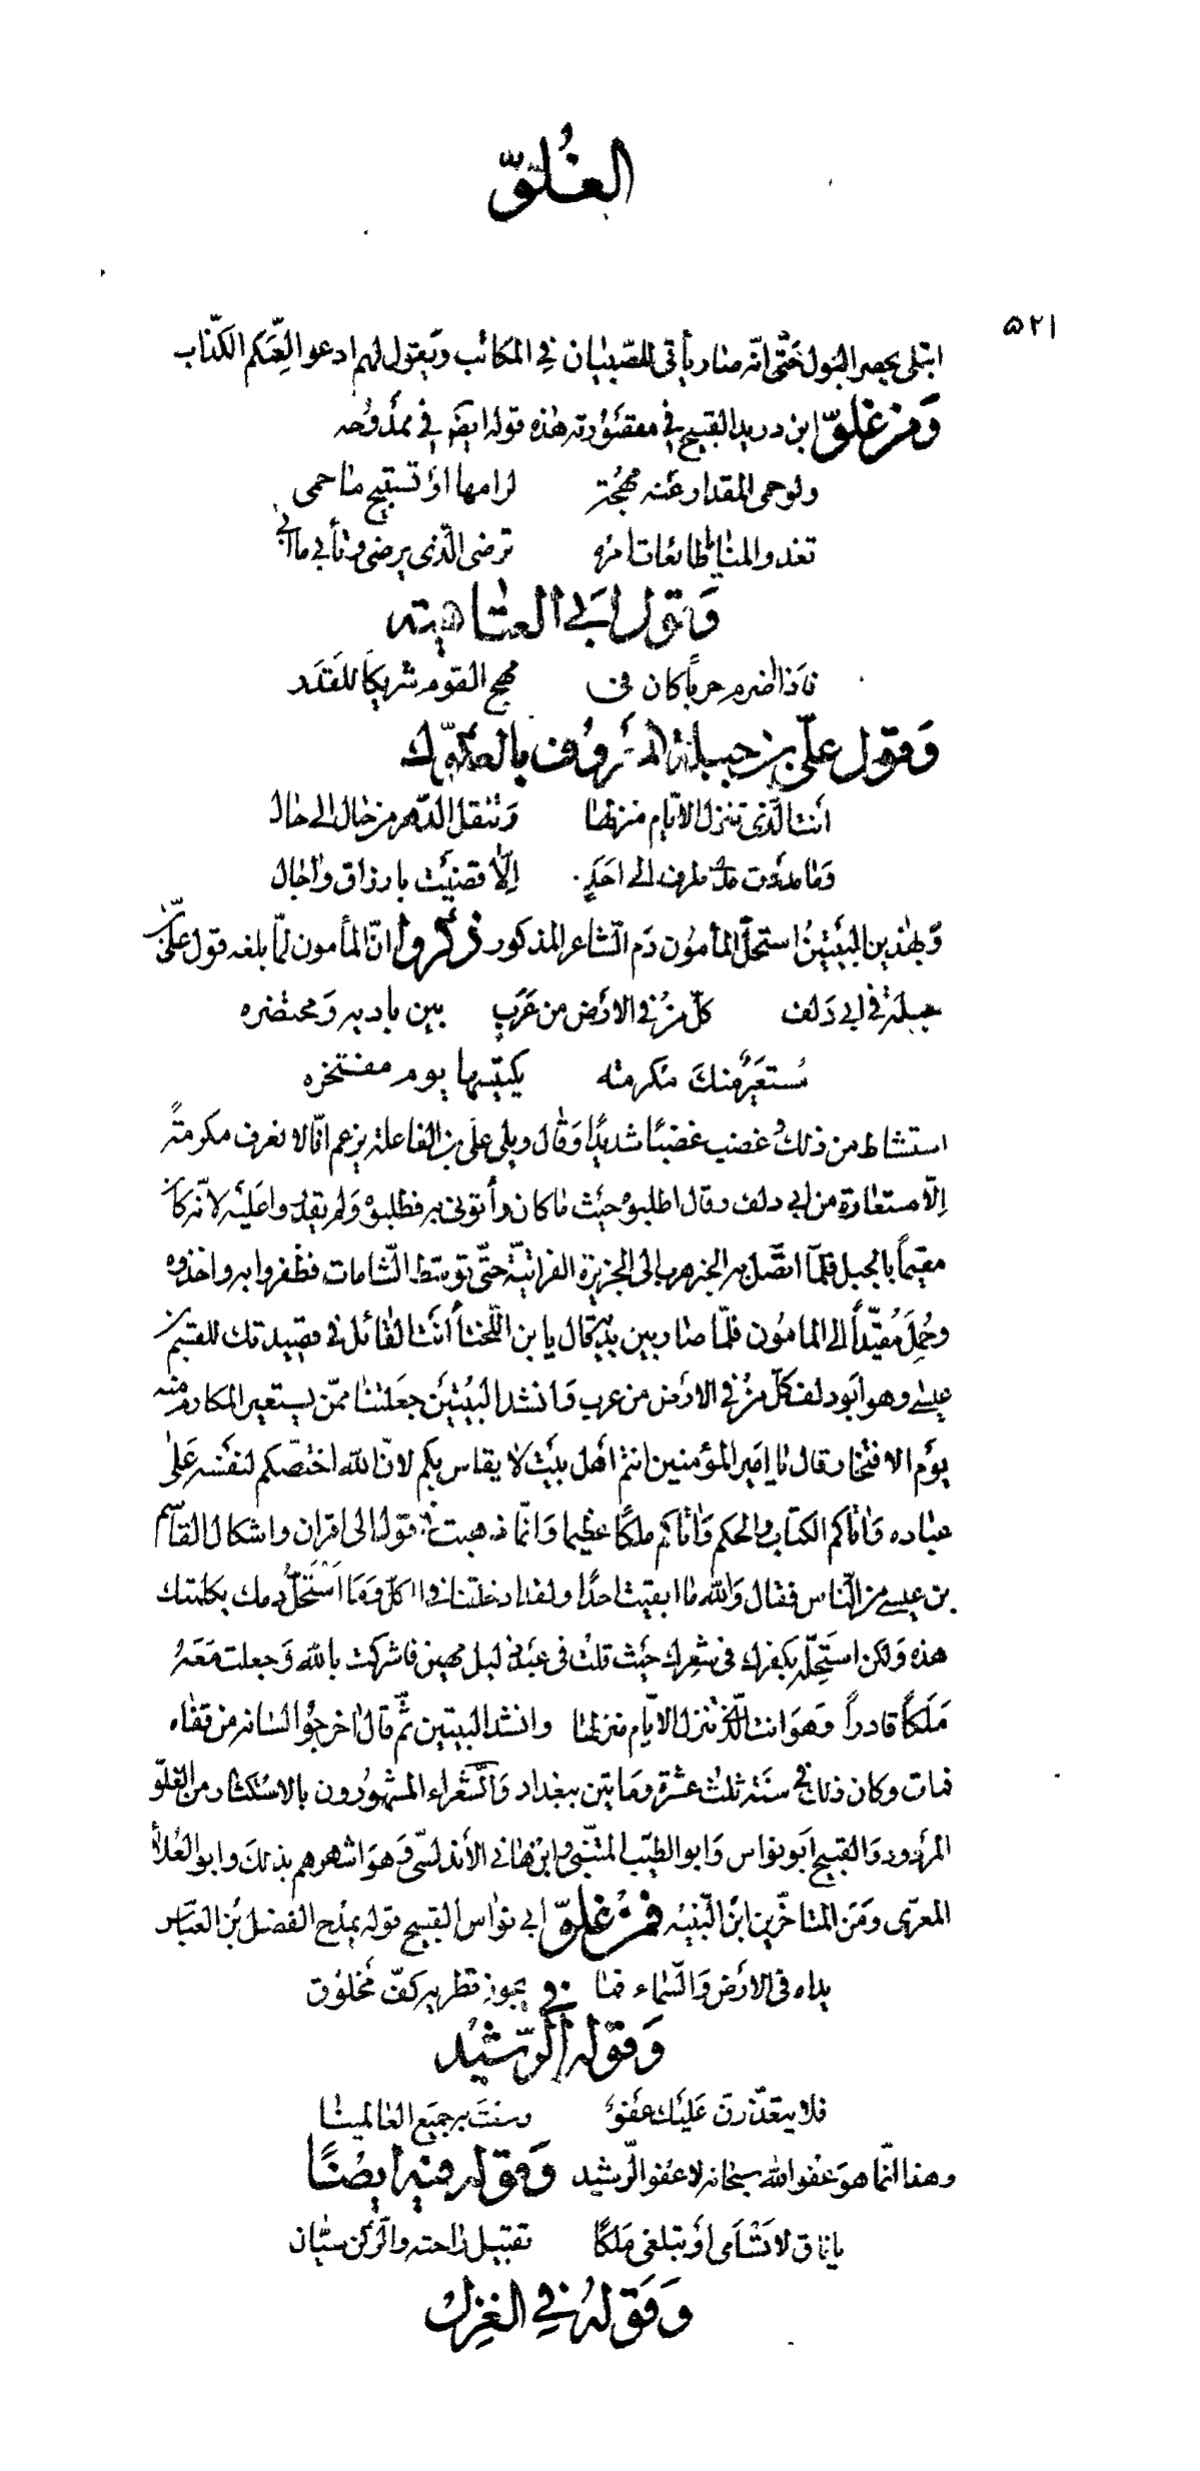 الغُلوّ
٥٢١
ابتلى بحصر البول حَتّى انّه صار يأتى للصّبيان فِي المكاتب وَيقول لهم ادعوا لِعَمّكم الكذّاب
وَمن غلوّ ابن دريد القبيح فِي مقصُورته هٰذه قوله ايضا فى ممدُوحه
ولو حمى المقدار عَنه مهجُة لرامها اوْ تستبيح مٰا حمى
تغدو المنايا طٰائعات امره ترضى الّذى يرضى وتأبى ما ابى
وَقول ابَى العتاهيته
فَاذا اضرم حربًا كان فى مهج القوم شريكًا للقَدَر
وَقول علىّ بن جبلة المعرُوف بالعكوّك
أنت الّذى تنزل الايّام منزلها وَتنقل الدّهر من حٰال الى حٰال
وَمٰا مدَدت مدى طرف الى احَدٍ اِلّا قضيت بارزاق وَاٰجال
وَبهٰذين البيَتين استحلّ المأمُون دَم الشّاعر المذكور ذكروا انّ المأمون لمّا بلغه قول علىّ بن
جبلة فى ابى دَلف كلّ منْ فى الارَض من عَرَبٍ بين باديه وَمحتضره
مُستعَيرٌ منكَ مَكرمته يكتسيها يوم مفتخره
استشاط من ذلك وَغضب غضبًا شديدًا وَقٰال ويلى على بن الفاعلة يزعم انّا لا نعرف مكرمتًه
اِلّا مستعٰارة من ابى دلف وقال اطلبوه حيَث مٰا كان وأتونى به فطلبوه وَلم يقدروا عَليَه لانّه كان
مقيمًا بالجبل فلمّا اتّصل به الخبر هرب الى الجزيرة الفراتيّة حتّى توسّط الشّامات فظفروا به واخذوه
وحُمِلَ مُقيّدًا الى المامُون فلمّا صٰار بين يديَه قال يا بن اللّخنآ أنَت القٰائل فى قصيدتك للقسم بن
عيسى وهو ابَو دلف كلّ منْ فى الارَض من عرب وَانشد البيُتيَن جعَلتنٰا ممّن يستعير المكارم منه
يوَم الافتخار وقال يٰا امَير المؤمنين انتم اهَل بيَت لا يقاس بكم لانّ الله اختصّكم لنفَسه عَلى
عبٰاده وَاٰتاكم الكتٰاب والحكم وَاٰتاكم ملكًا عظيما وَانّما ذهبت فى قولى الى اقران واشكال القٰاسم
بن عيسى من النّاس فقال وَالله مٰا ابقيت احدًا ولقد ادخلتنا فى الكلّ وَمَا اسْتَحَلُّ دمك بكلمتك
هذه وَلكن استَحِلّه بكفرك فى شِعِرك حيَث قلتْ فى عبَد ذليل مهين فاشركت بالله وَجعلت مَعَهُ
مَلَكًا قادراً وَهوَ انت الّذى تنزل الايّام منزلهٰا وانشد البيتين ثُمّ قال اخرجُوا لسٰانه من قفٰاه
فمات وكان ذلك فِي سنَة ثلث عشَرة ومَاتين ببغداد وَالشّعراء المشهُورون بالاستكثار من الغلوّ
المردود وَالقبيح ابَو نواس وَابو الطيّب المتنّبى وابْن هٰانى الأندلسّى وَهوَ اشهرهم بذلكَ وابو العُلأ
المعرّى ومَن المتاخّرين ابنُ النّبيه فمنْ غلوّ ابى نواس القبيح قوله يمدح الفضل بْن العبّاس
يداه فى الارَض وَالسّمٰاء فمٰا يجوز قطريه كفّ مخَلوُق
وَقوله فى الرّشيْد
فلا يتعذّرن عَليَك عفوٌ وسعَت به جميَع العٰالمينٰا
وهذا انّما هوَ عفْو الله سبحٰانه لا عفُو الرّشيد وَقوله فيه ايضًا
يا نٰاق لا تسْأمى أوَ تبلغى مَلكًا تقبيل رٰاحته والرّكن سيّان
وَقَولهُ فِي الغزل